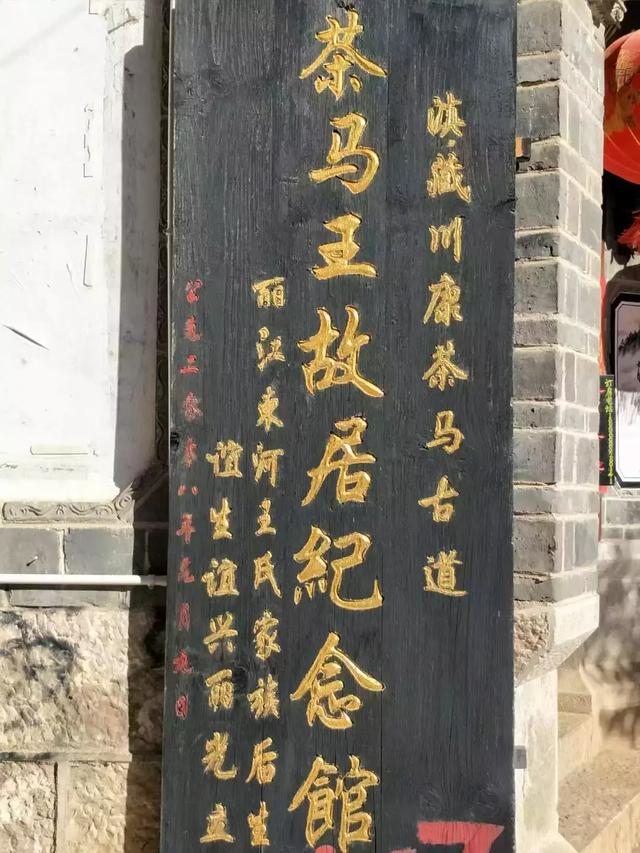 滇·藏川康茶马古道
茶马王故居紀念館
丽江束河王氏家族后生
谊生谊兴丽光立
公元二零零八年元月九日